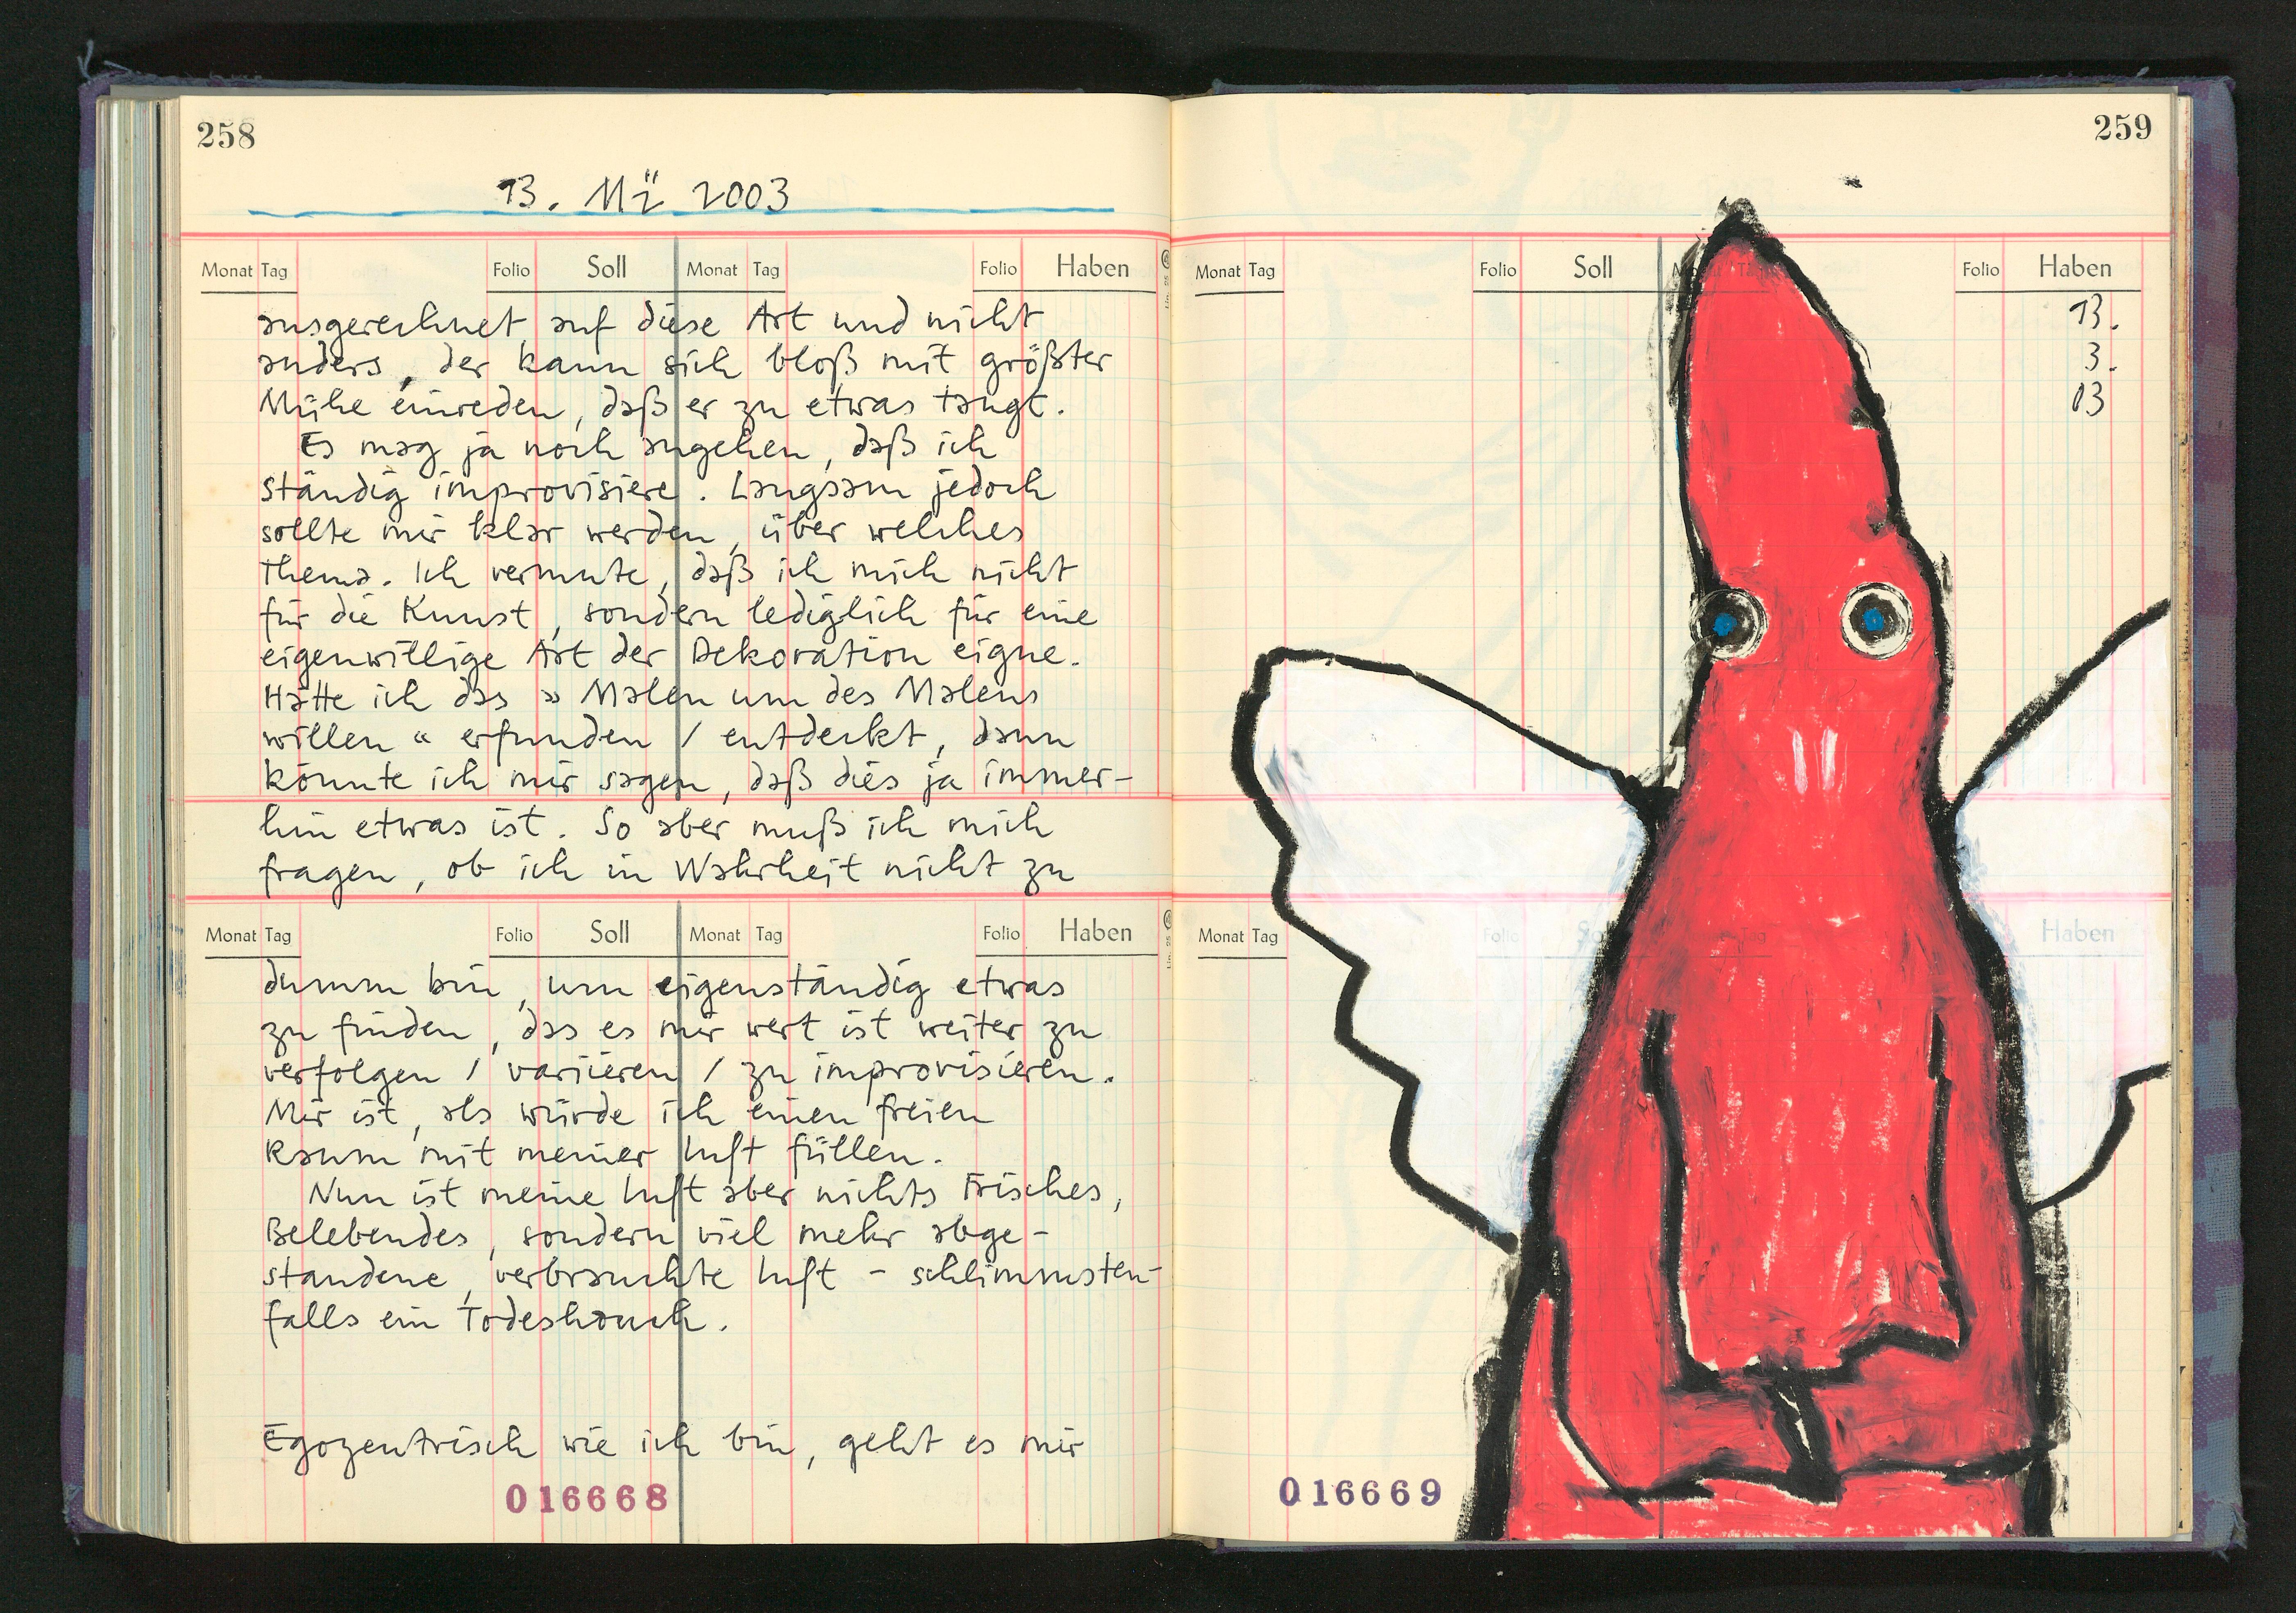 258
13. Mä 2003
Monat Tag Folio Soll Monat Tag Folio Haben
ausgerechnet auf diese Art und nicht
anders, der kann sich bloß mit größter
Mühe einreden, daß er zu etwas taugt.
Es mag ja noch angehen, daß ich
ständig improvisiere. Langsam jedoch
sollte mir klar werden, über welches
Thema. Ich vermute, daß ich mich nicht
für die Kunst, sondern lediglich für eine
eigenwillige Art der Dekoration eigne.
Hätte ich das » Malen um des Malens
willen « erfunden / entdeckt, dann
könnte ich mir sagen, daß dies ja immer-
hin etwas ist. So aber muß ich mich
fragen, ob ich in Wahrheit nicht zu
Monat Tag Folio Soll Monat Tag Folio Haben
dumm bin, um eigenständig etwas
zu finden, das es mir wert ist weiter zu
verfolgen / variieren / zu improvisieren.
Mir ist, als würde ich einen freien
Raum mit meiner Luft füllen.
Nun ist meine Luft aber nichts Frisches,
Belebendes, sondern viel mehr abge-
standene, verbrauchte Luft - schlimmsten-
falls ein Todeshauch.
Egozentrisch wie ich bin, geht es mir
016668
259
Monat Tag Folio Soll Monat Tag Folio Haben
13.
3.
03
Monat Tag Folio Soll Tag Haben
016669